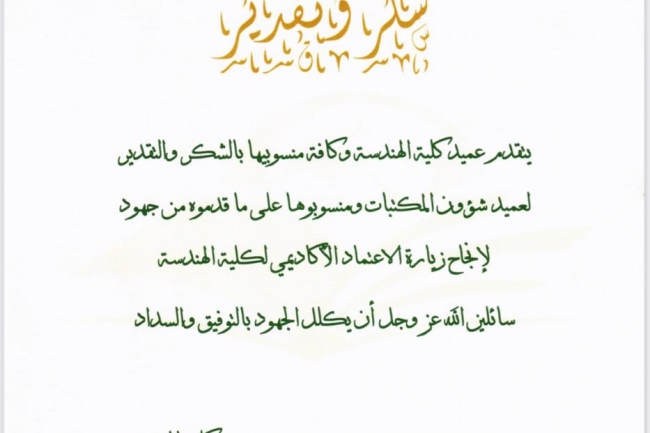 شكر وتقدير
يتقدم عميد كلية الهندسة وكافة منسوبيها بالشكر والتقدير
لعميد شؤون المكتبات ومنسوبوها على ما قدموه من جهود
لإنجاح زيارة الاعتماد الأكاديمي لكلية الهندسة
سائلين الله عز وجل أن يكلل الجهود بالتوفيق والسداد